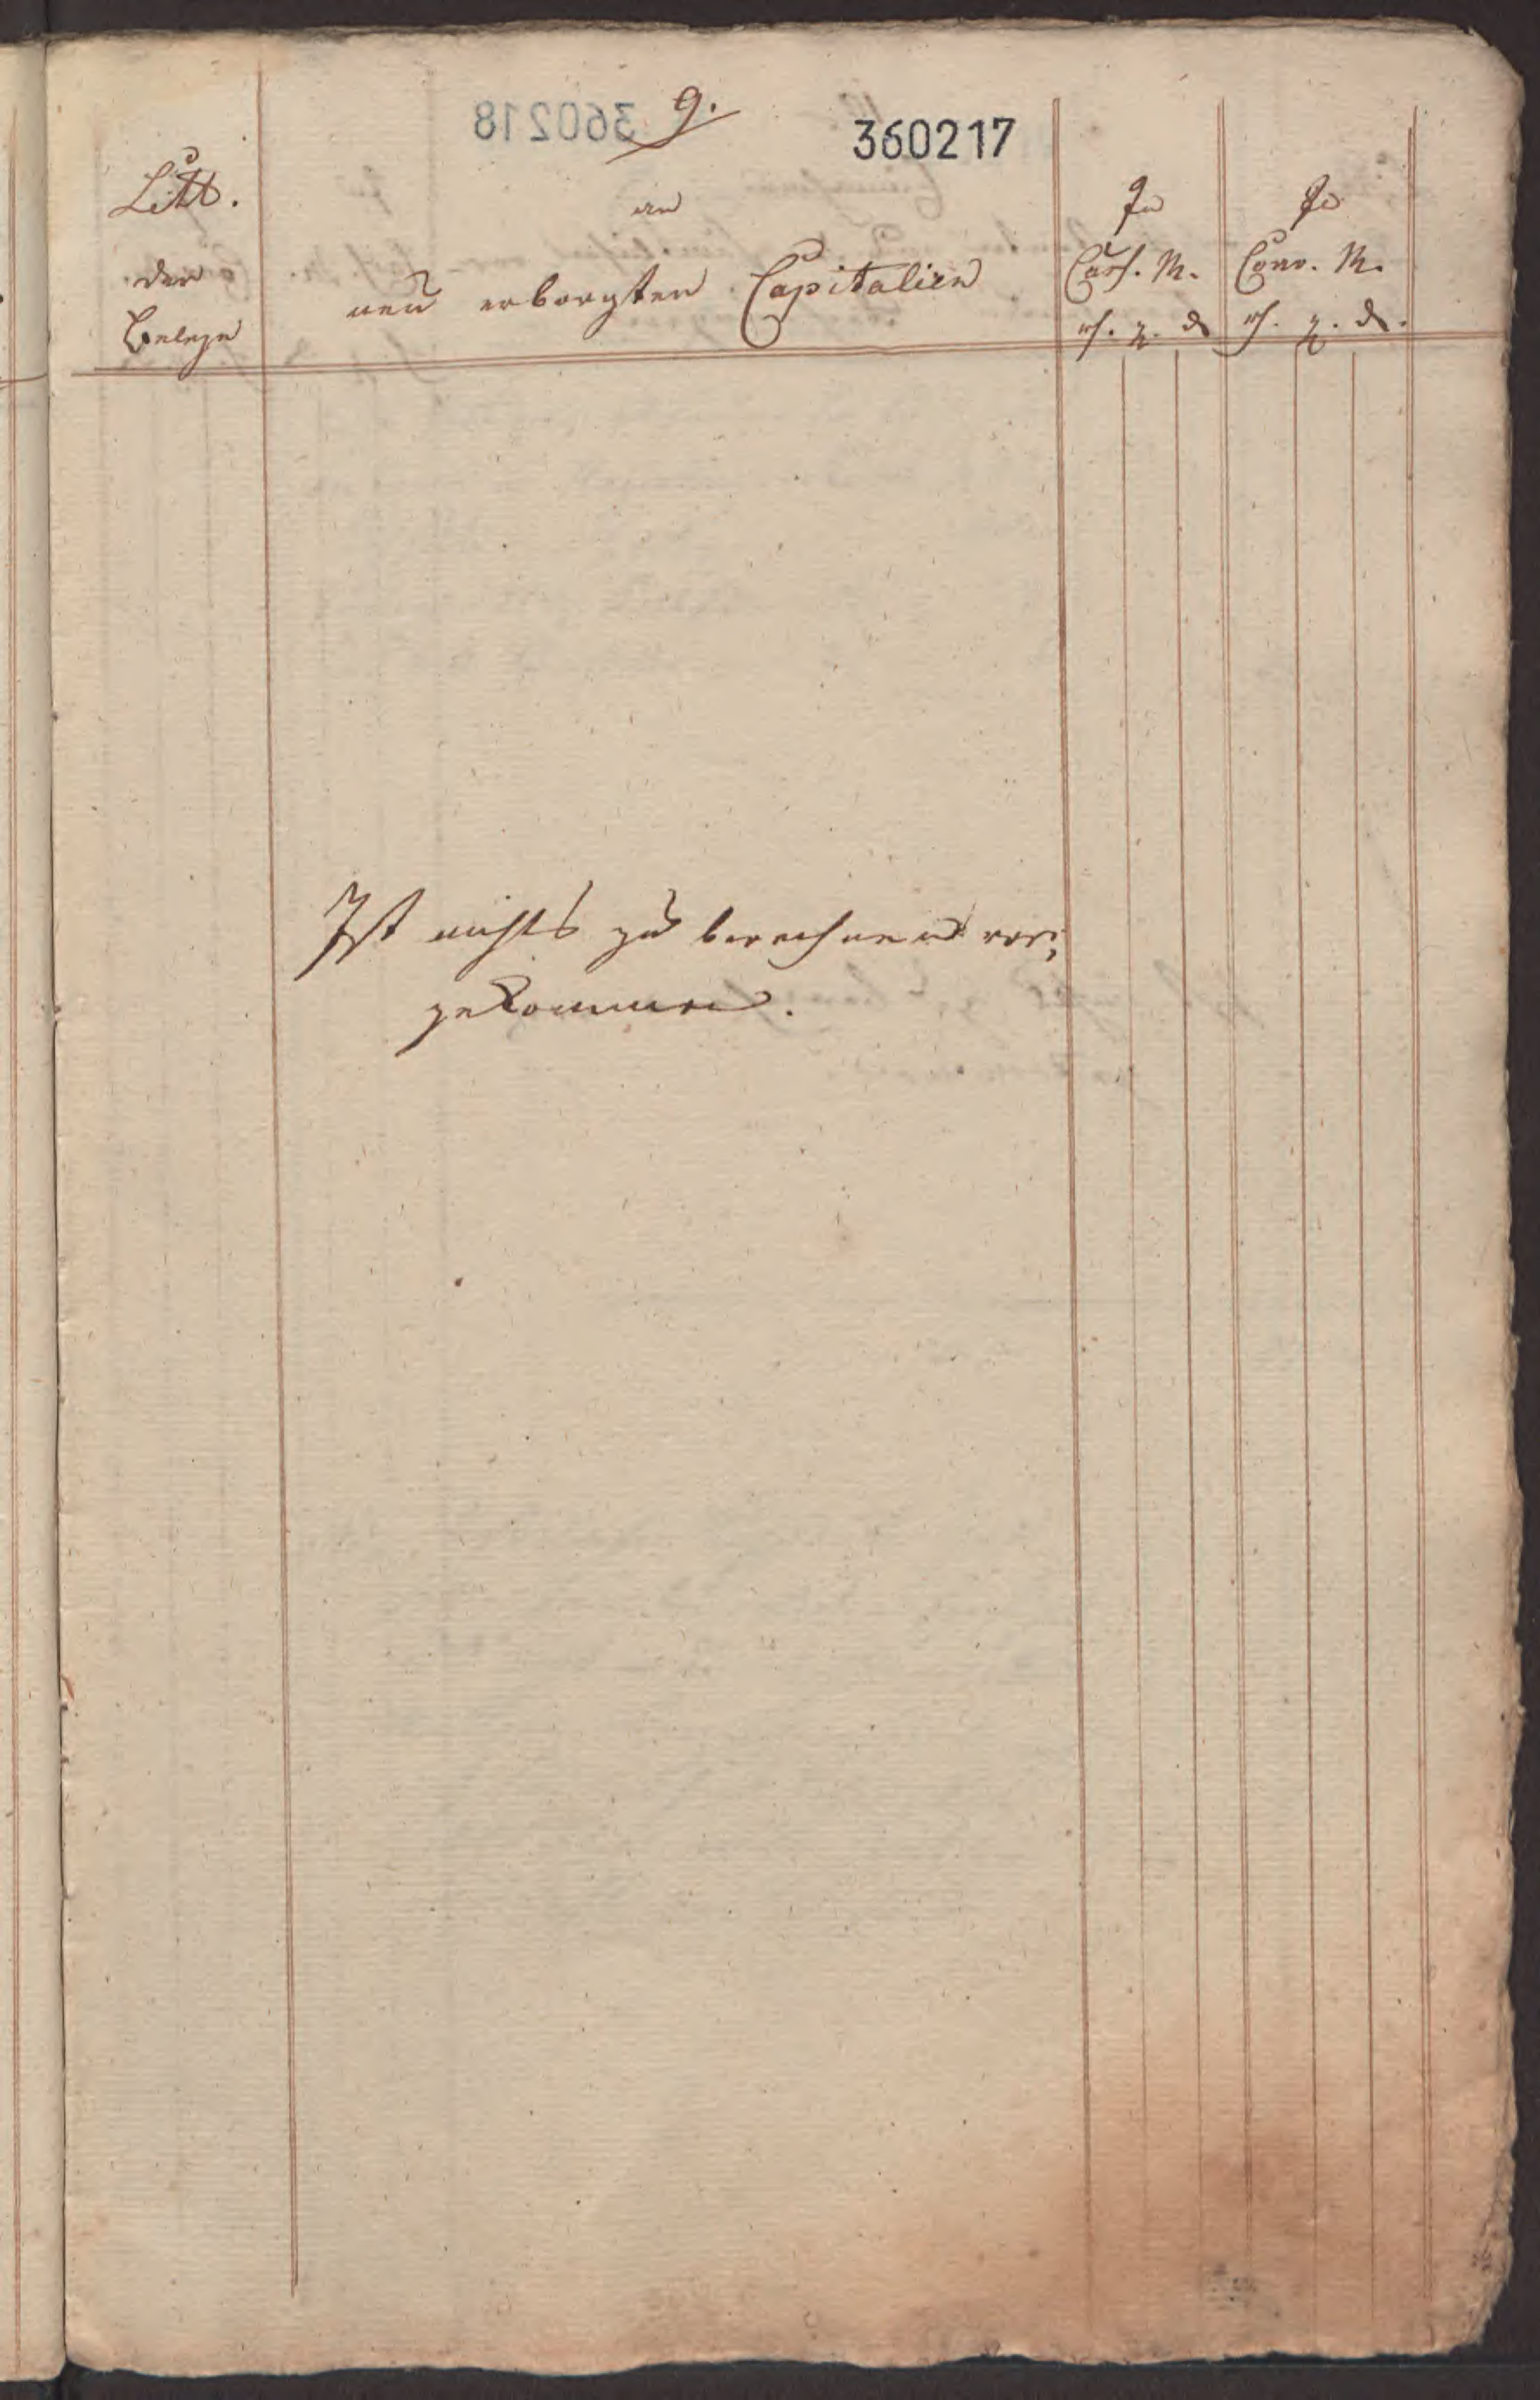 9.
360217
Litt.
der
Belege
an
neu erborgten Capitalien
In
Cass. M.
rh. g. d
In
Conv. M.
rh. g. d.
Ist nichts zu berechnen vor,
gekommen.